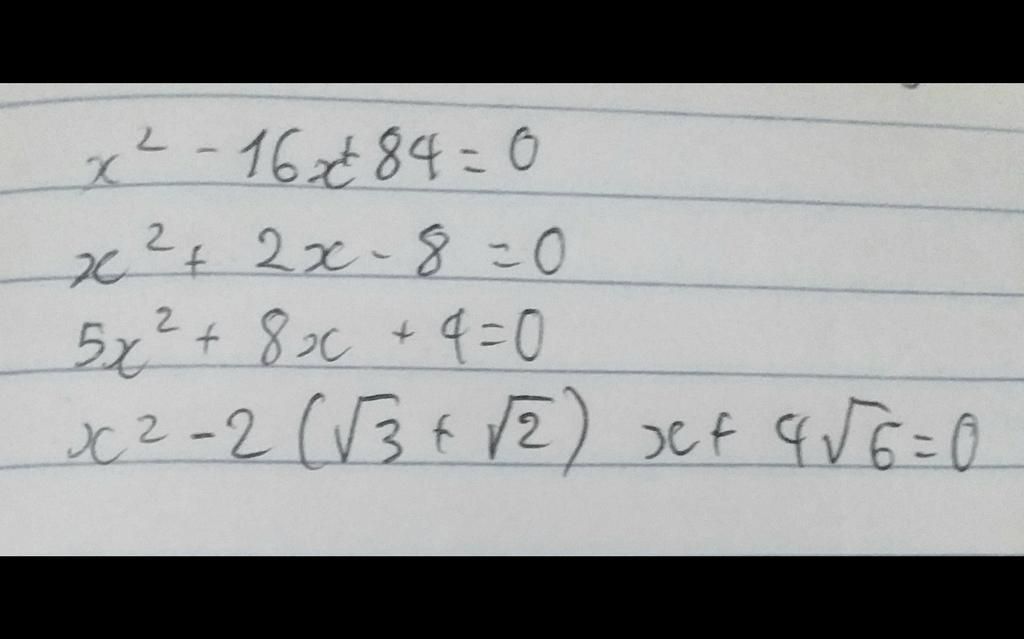 x² - 16x + 84 = 0
x² + 2x - 8 = 0
5x² + 8x + 4 = 0
x² - 2 (√3 + √2) x + 4√6 = 0